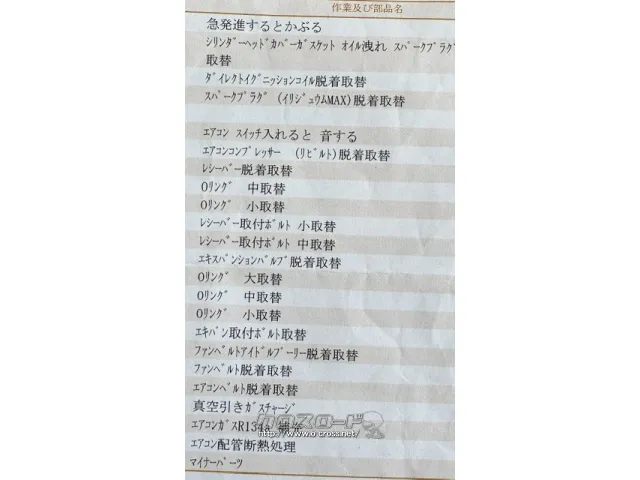 作業及び部品名
急発進するとかぶる
ｼﾘﾝﾀﾞｰﾍｯﾄﾞｶﾊﾞｰｶﾞｽｹｯﾄ ｵｲﾙ洩れ ｽﾊﾟｰｸﾌﾟﾗｸﾞ
取替
ﾀﾞｲﾚｸﾄｲｸﾞﾆｯｼｮﾝｺｲﾙ脱着取替
ｽﾊﾟｰｸﾌﾟﾗｸﾞ (ｲﾘｼﾞｭｳﾑMAX)脱着取替
ｴｱｺﾝ ｽｲｯﾁ入れると 音する
ｴｱｺﾝｺﾝﾌﾟﾚｯｻｰ (ﾘﾋﾞﾙﾄ)脱着取替
ﾚｼｰﾊﾞｰ脱着取替
Oﾘﾝｸﾞ 中取替
Oﾘﾝｸﾞ 小取替
ﾚｼｰﾊﾞｰ取付ﾎﾞﾙﾄ 小取替
ﾚｼｰﾊﾞｰ取付ﾎﾞﾙﾄ 中取替
ｴｷｽﾊﾟﾝｼｮﾝﾊﾞﾙﾌﾞ脱着取替
Oﾘﾝｸﾞ 大取替
Oﾘﾝｸﾞ 中取替
Oﾘﾝｸﾞ 小取替
ｴｷﾊﾟﾝ取付ﾎﾞﾙﾄ取替
ﾌｧﾝﾍﾞﾙﾄｱｲﾄﾞﾙﾌﾟｰﾘｰ脱着取替
ﾌｧﾝﾍﾞﾙﾄ脱着取替
ｴｱｺﾝﾍﾞﾙﾄ脱着取替
真空引きｶﾞｽﾁｬｰｼﾞ
クロスロード
ｴｱｺﾝｶﾞｽR134a
www.o-cross.net/
ｴｱｺﾝ配管断熱処理
ﾏｲﾅｰﾊﾟｰﾂ